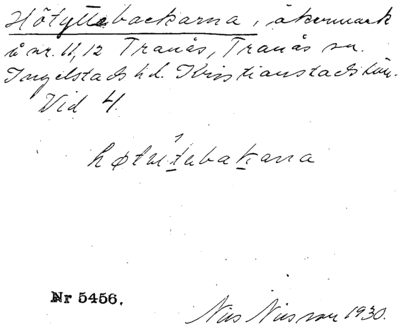 Hötyttebackarna, åkermark
å nr. 11, 12 Tranås, Tranås sn.
Ingelstads hd. Kristianstads län.
Vid 4.
Nr 5456.
Nils Nilsson 1930.